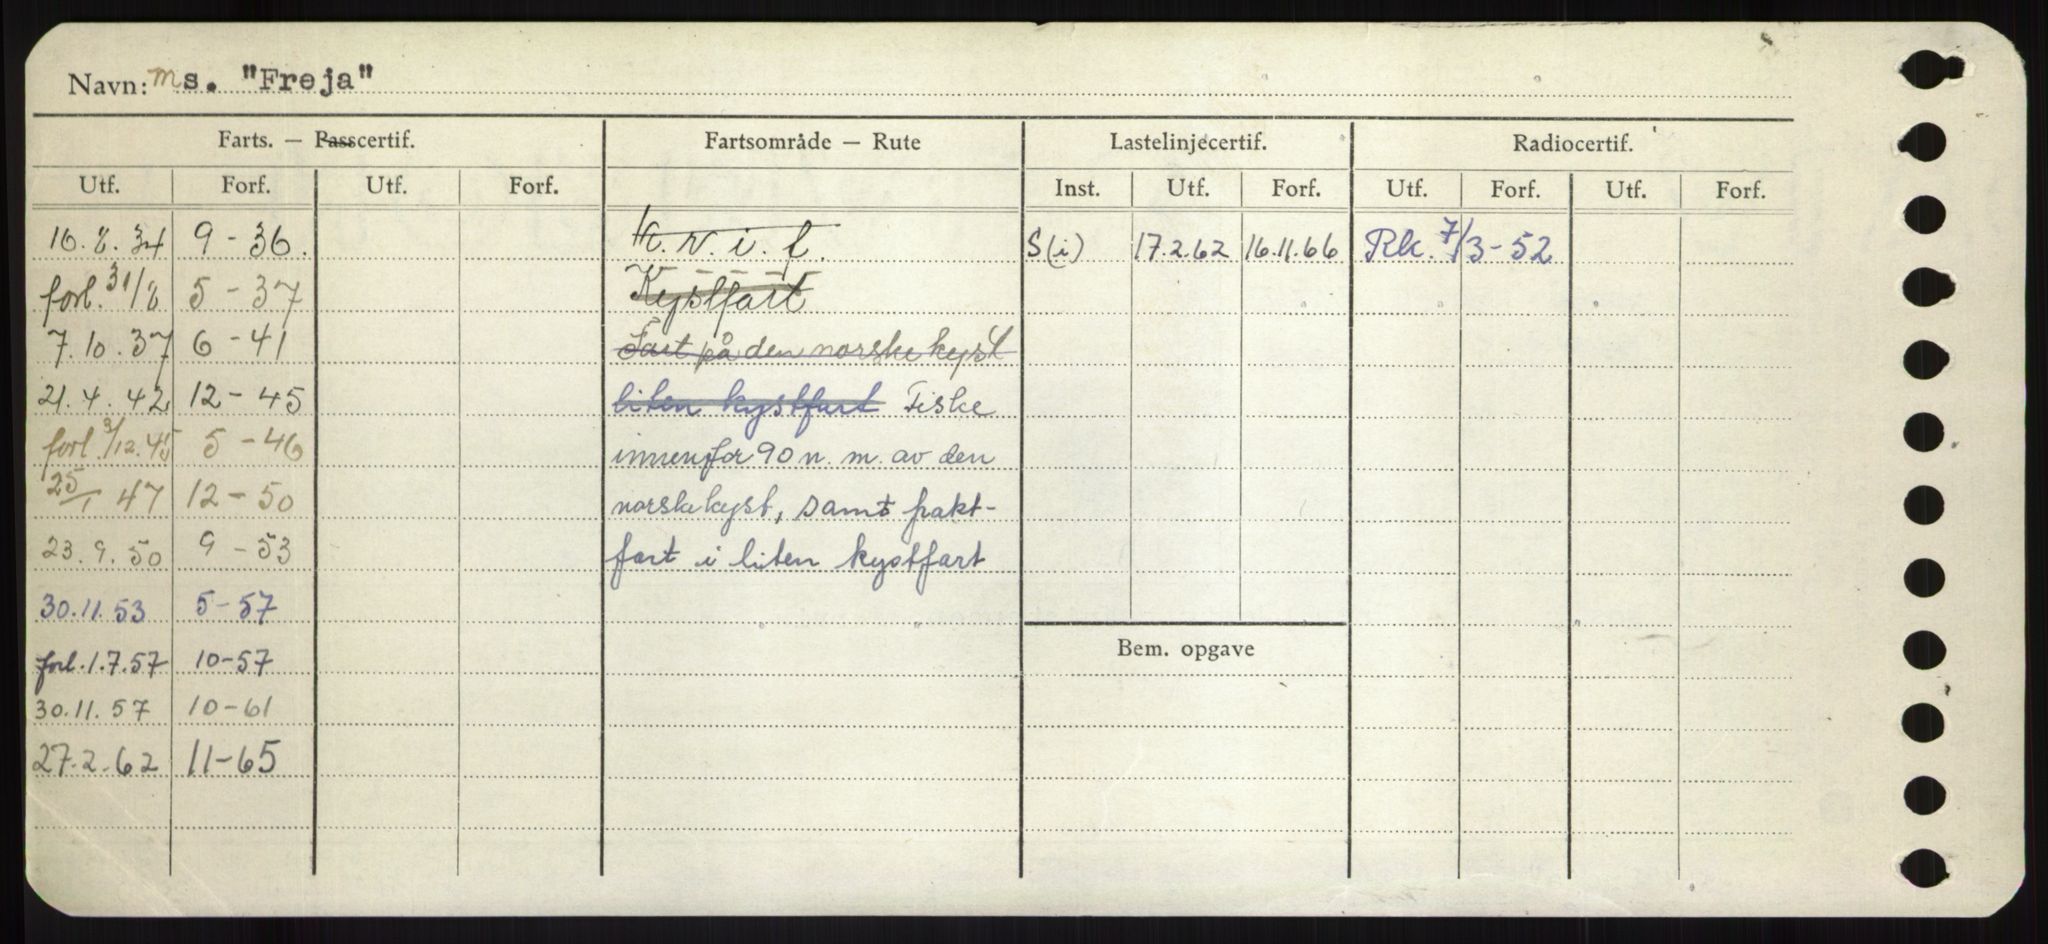 Navn: ms. "Frøja"
Farts. — Passcertif. Fartsområde — Rute Lastelinjecertif. Radiocertif.
Utf. Forf. Utf. Forf. Inst. Utf. Forf. Utf. Forf. Utf. Forf.
16.8.34 9-36. k.v.i.f. S(i) 17.2.62 16.11.66 Rk. 7/3-52
forl. 31/8 5-37 Kystfart
7.10.37 6-41 Fart på den norske kyst
21.4.42 12-45 liten kystfart Fiske
forl. 3/12.45 5-46 innenfor 90 n. m. av den
25/1 47 12-50 norske kyst, samt frakt-
23.9.50 9-53 fart i liten kystfart
30.11.53 5-57
forl. 1.7.57 10-57 Bem. opgave
30.11.57 10-61
27.2.62 11-65